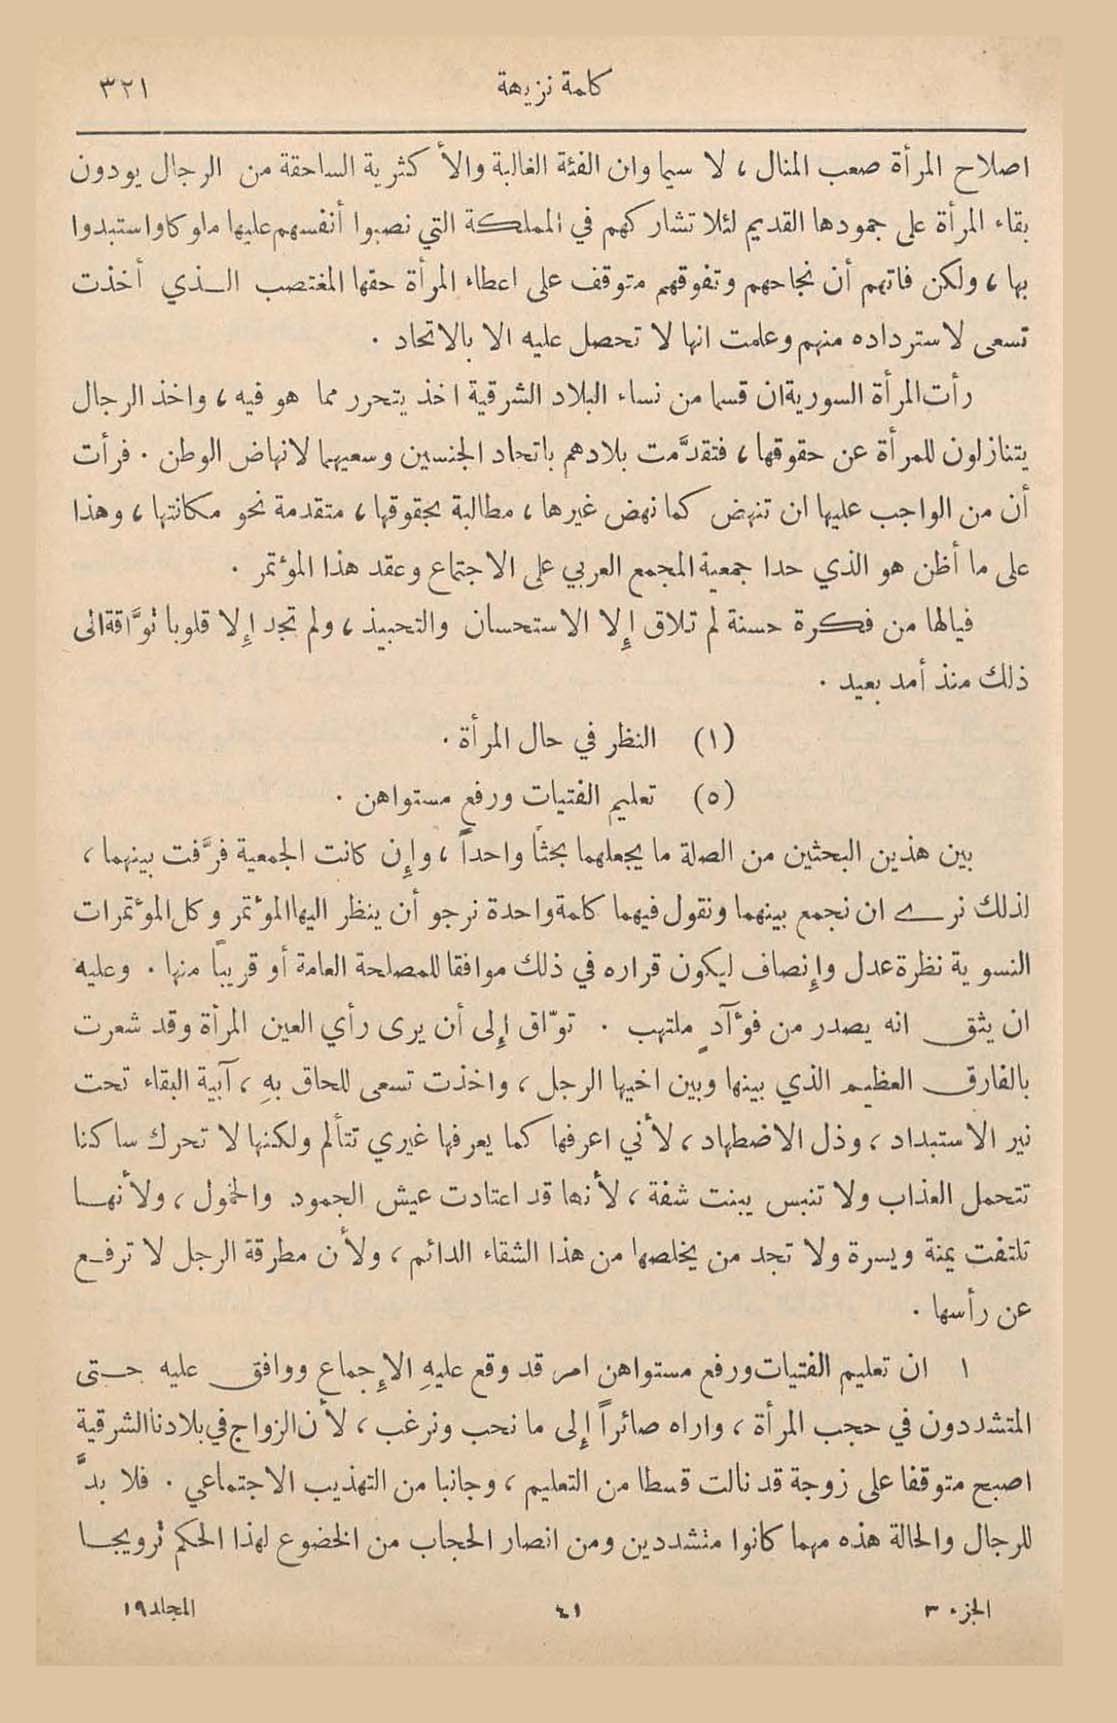 كلمة نزيهة ٣٢١
اصلاح المرأة صعب المنال ، لا سيما وان الفئة الغالبة والأكثرية الساحقة من الرجال يودون
بقاء المرأة على جمودها القديم لئلا تشاركهم في المملكة التي نصبوا أنفسهم عليها ملوكا واستبدوا
بها ، ولكن فاتهم أن نجاحهم وتفوقهم متوقف على اعطاء المرأة حقها المغتصب الـذي أخذت
تسعى لاسترداده منهم وعلمت انها لا تحصل عليه الا بالاتحاد .
رأت المرأة السورية ان قسما من نساء البلاد الشرقية اخذ يتحرر مما هو فيه ، واخذ الرجال
يتنازلون للمرأة عن حقوقها ، فتقدَّمت بلادهم باتحاد الجنسين وسعيهما لانهاض الوطن . فرأت
أن من الواجب عليها ان تنهض كما نهض غيرها ، مطالبة بحقوقها ، متقدمة نحو مكانتها ، وهذا
على ما أظن هو الذي حدا جمعية المجمع العربي على الاجتماع وعقد هذا المؤتمر .
فيالها من فكرة حسنة لم تلاق إلا الاستحسان والتحبيذ ، ولم تجد إلا قلوبا توَّاقة الى
ذلك منذ أمد بعيد .
(١) النظر في حال المرأة .
(٥) تعليم الفتيات ورفع مستواهن .
بين هذين البحثين من الصلة ما يجعلهما بحثاً واحداً ، وإن كانت الجمعية فرَّقت بينهما ،
لذلك نرى ان نجمع بينهما ونقول فيهما كلمة واحدة نرجو أن ينظر اليها المؤتمر وكل المؤتمرات
النسوية نظرة عدل وإنصاف ليكون قراره في ذلك موافقا للمصلحة العامة أو قريباً منها . وعليه
ان يثق انه يصدر من فؤآدٍ ملتهب . توّاق إلى أن يرى رأي العين المرأة وقد شعرت
بالفارق العظيم الذي بينها وبين اخيها الرجل ، واخذت تسعى للحاق بهِ ، آبية البقاء تحت
نير الاستبداد ، وذل الاضطهاد ، لأني اعرفها كما يعرفها غيري تتألم ولكنها لا تحرك ساكنا
تتحمل العذاب ولا تنبس ببنت شفة ، لأنها قد اعتادت عيش الجمود والخمول ، ولأنهـا
تلتفت يمنة ويسرة ولا تجد من يخلصها من هذا الشقاء الدائم ، ولأن مطرقة الرجل لا ترفـع
عن رأسها .
١ ان تعليم الفتيات ورفع مستواهن امر قد وقع عليهِ الإجماع ووافق عليه حـتى
المتشددون في حجب المرأة ، واراه صائراً إلى ما نحب ونرغب ، لأن الزواج في بلادنا الشرقية
اصبح متوقفا على زوجة قد نالت قسطا من التعليم ، وجانبا من التهذيب الاجتماعي . فلا بدَّ
للرجال والحالة هذه مهما كانوا متشددين ومن انصار الحجاب من الخضوع لهذا الحكم ترويجـا
الجزء ٣ ٤١ المجلد ١٩